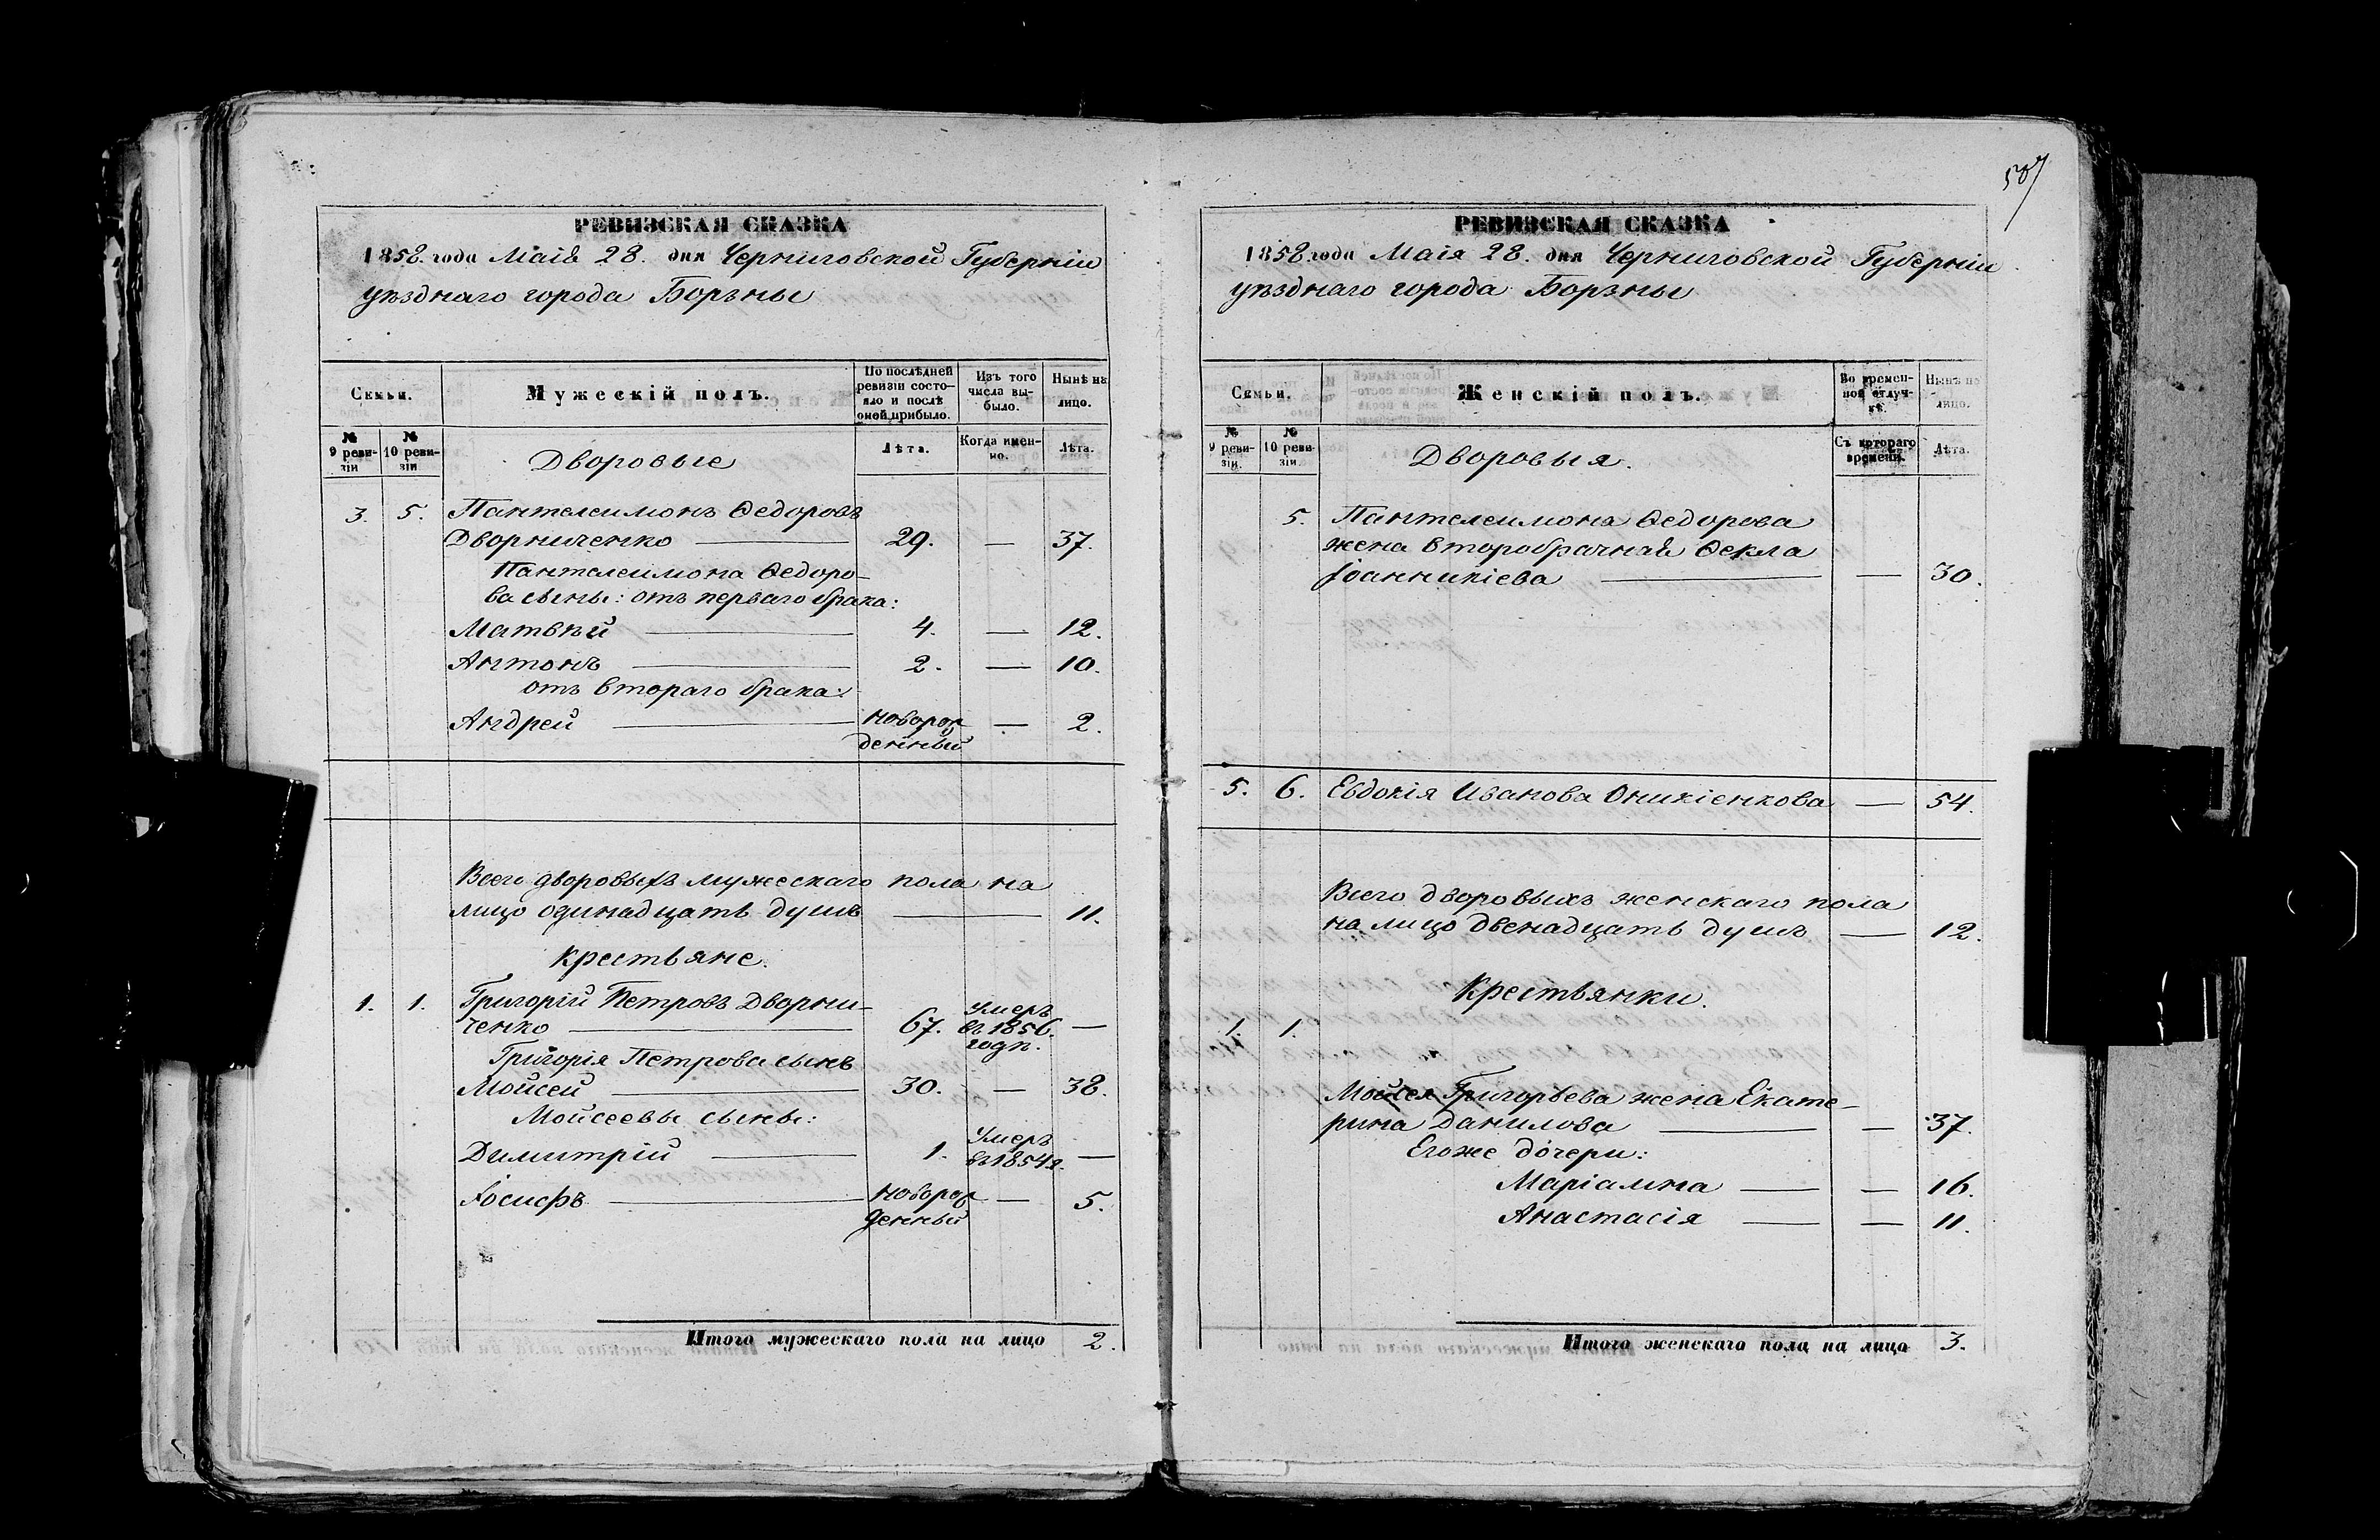 507
РЕВИЗСКАЯ СКАЗКА
1858. года Маія 28. дня Черниговской Губерніи
уѣзднаго города Борзны
Семьи.
Мужескій полъ.
По послѣдней ревизіи состояло и послѣ оной прибыло.
Изъ того числа выбыло.
Нынѣ на лицо.
№ 9 ревизіи
№ 10 ревизіи
Дворовые
Лѣта.
Когда именно.
Лѣта.
3. 5. Пантелеимонъ Ѳедоровъ
Дворниченко 29. — 37.
Пантелеимона Ѳедоро-
ва сыны: отъ перваго брака:
Матвѣй 4. — 12.
Антонъ 2. — 10.
отъ втораго брака:
Андрей новорож
денный — 2.
Всего дворовыхъ мужескаго пола на
лицо одинадцать душъ 11.
Крестьяне.
1. 1. Григорій Петровъ Дворни-
ченко 67. Умеръ въ 1856. годѣ. —
Григорія Петрова сынъ
Мойсей 30. — 38.
Мойсеевы сыны:
Димитрій 1. Умеръ въ 1854 г. —
Іосифъ новорож
денный — 5.
Итого мужескаго пола на лицо 2.
РЕВИЗСКАЯ СКАЗКА
1858 года Маія 28. дня Черниговской Губерніи
уѣзднаго города Борзны
Семьи.
Женскій полъ.
Во временной отлучкѣ.
Нынѣ на лицо.
№ 9 ревизіи.
№ 10 ревизіи.
Дворовыя.
Съ котораго времени.
Лѣта.
5. Пантелеимона Ѳедорова
жена второбрачная Ѳекла
Іоанникіева — 30.
5. 6. Евдокія Иванова Оникіенкова — 54.
Всего дворовыхъ женскаго пола
на лицо двенадцать душъ 12.
Крестьянки.
1. 1.
Мойсея Григорьева жена Екате-
рина Данилова — 37.
Егоже дочери:
Маріамна — 16.
Анастасія — 11.
Итого женскаго пола на лицо 3.